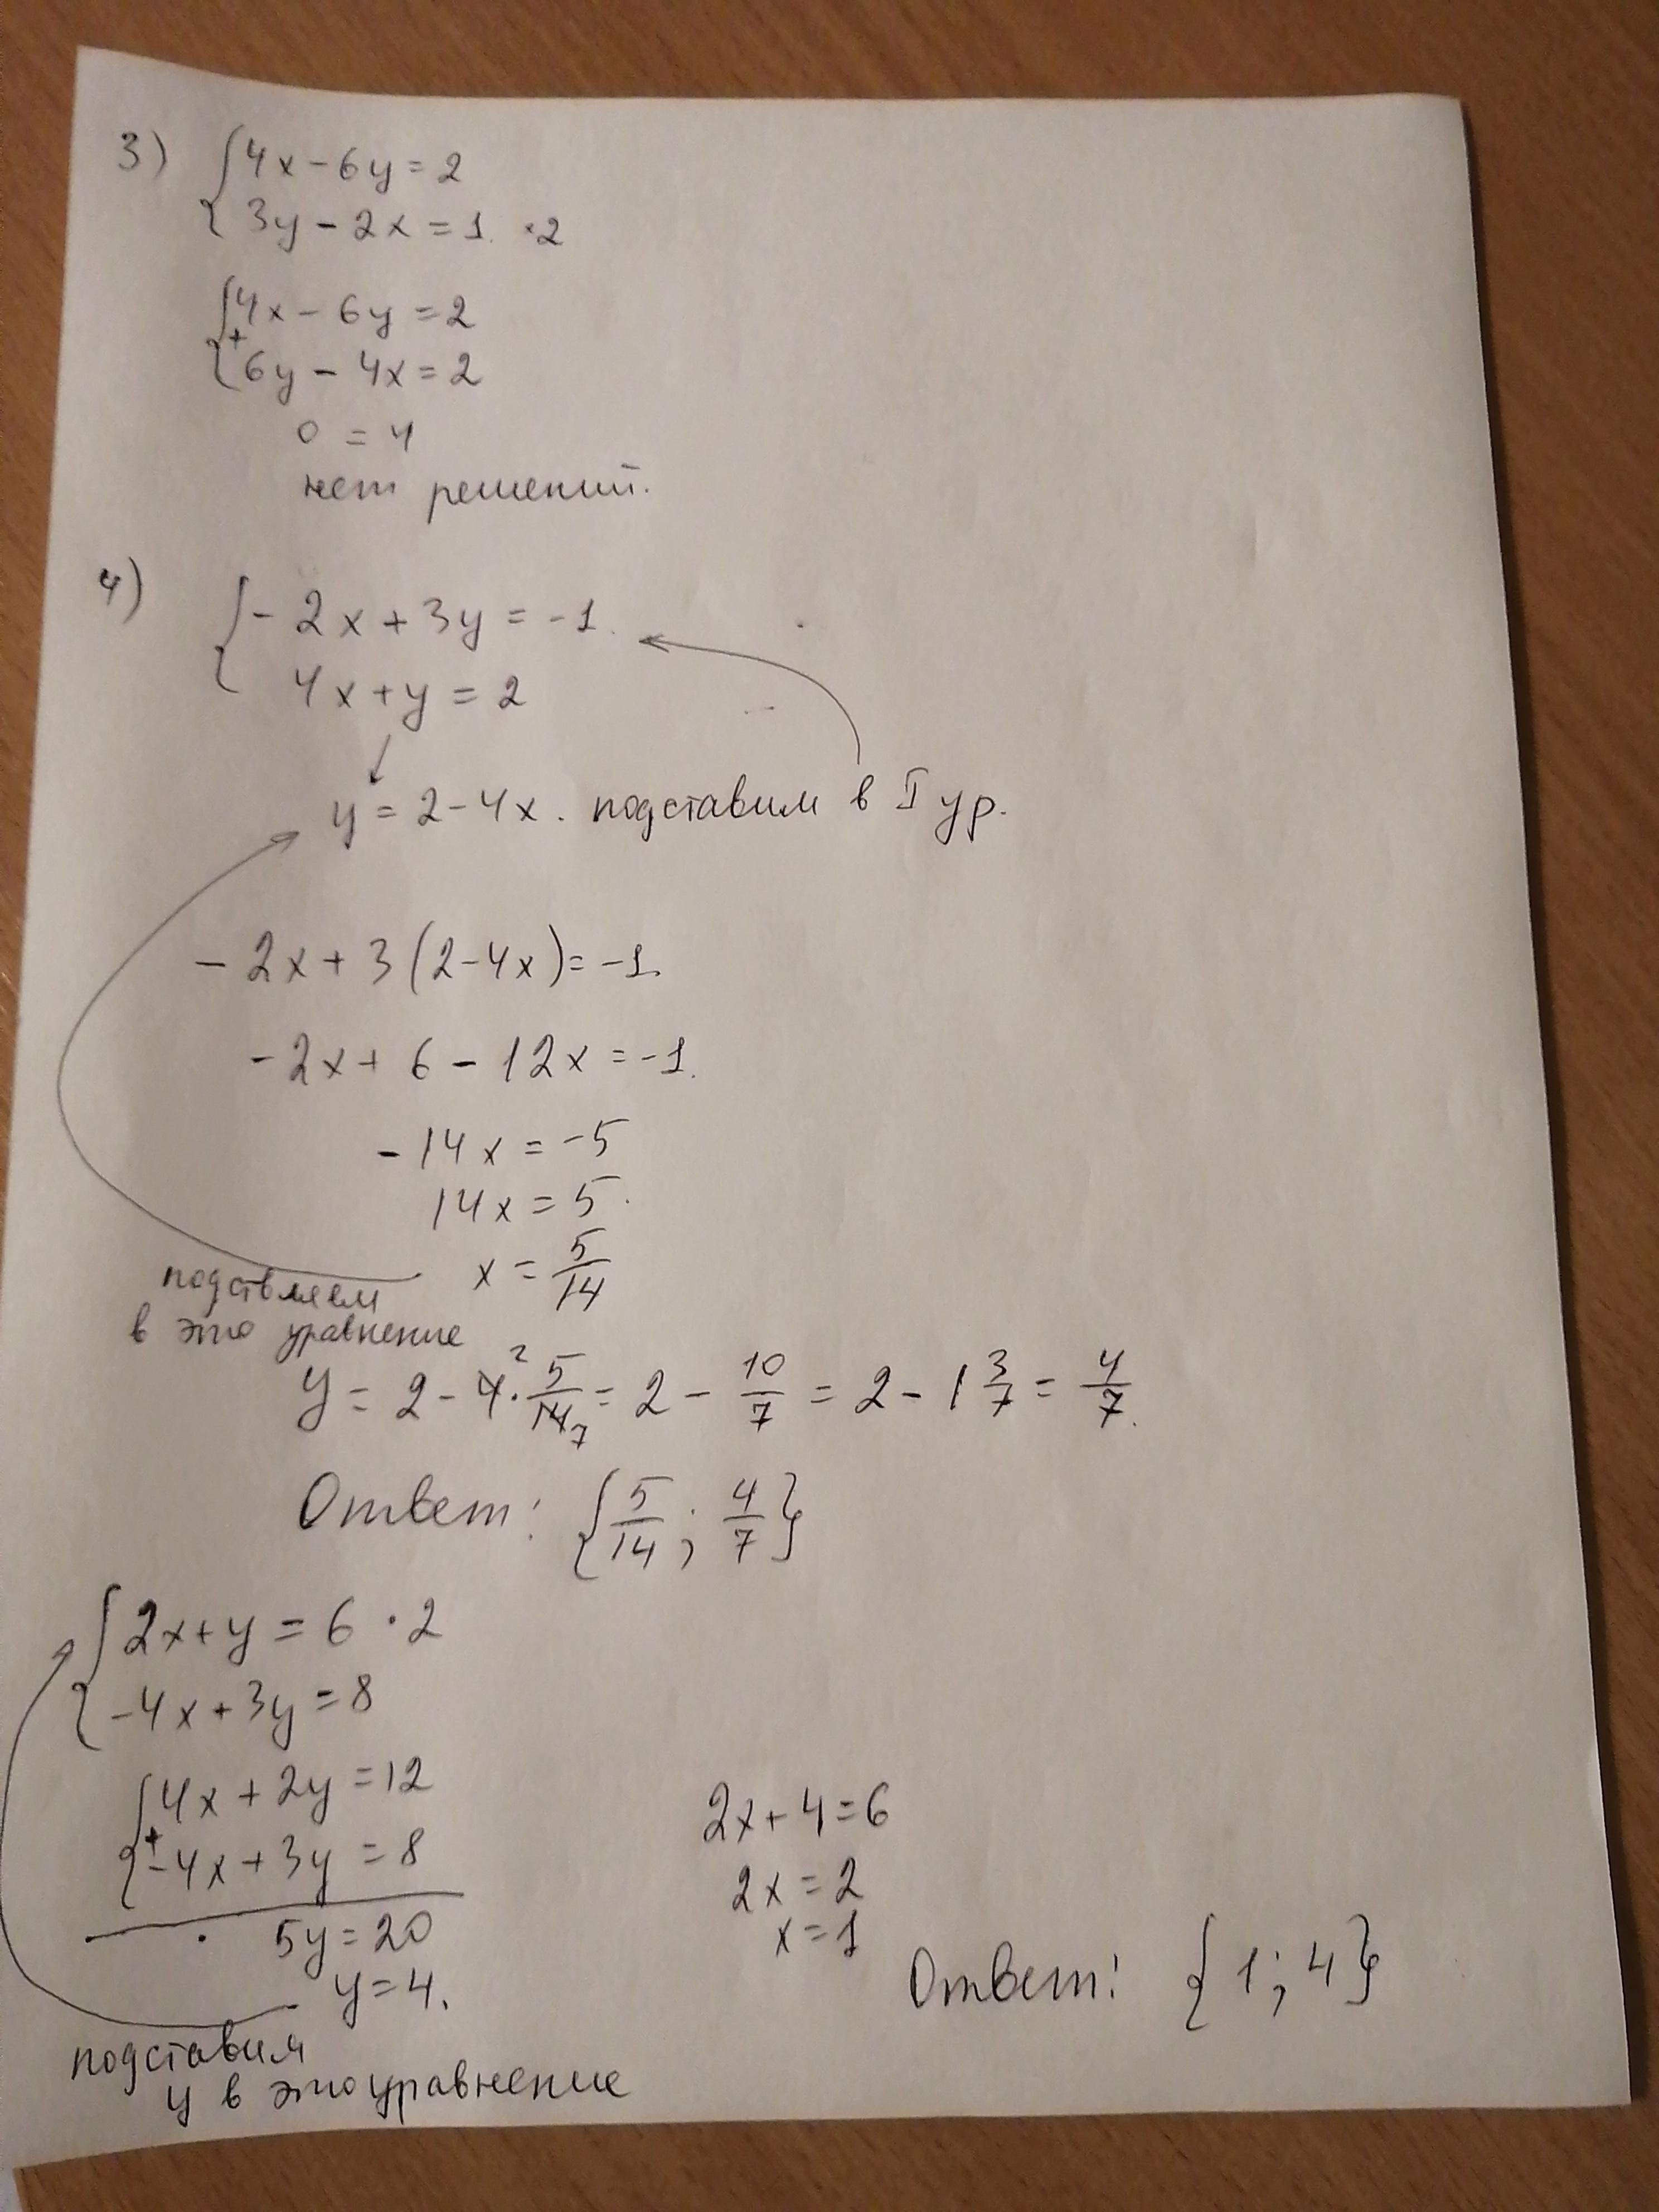 3) { 4x - 6y = 2
3y - 2x = 1. ·2
{ 4x - 6y = 2
+
6y - 4x = 2
0 = 4
нет решений.
4) { - 2x + 3y = -1.
4x + y = 2
↓
y = 2 - 4x. подставим в I ур.
- 2x + 3(2-4x) = -1.
- 2x + 6 - 12x = -1.
- 14x = -5
14x = 5.
x = 5/14
подствляем
в это уравнение
y = 2 - 4² · 5/14₇ = 2 - 10/7 = 2 - 1 3/7 = 4/7.
Ответ: {5/14; 4/7}
{ 2x + y = 6 ·2
-4x + 3y = 8
{ 4x + 2y = 12
+
-4x + 3y = 8
5y = 20
y = 4.
подставим
y в это уравнение
2x + 4 = 6
2x = 2
x = 1
Ответ: {1; 4}